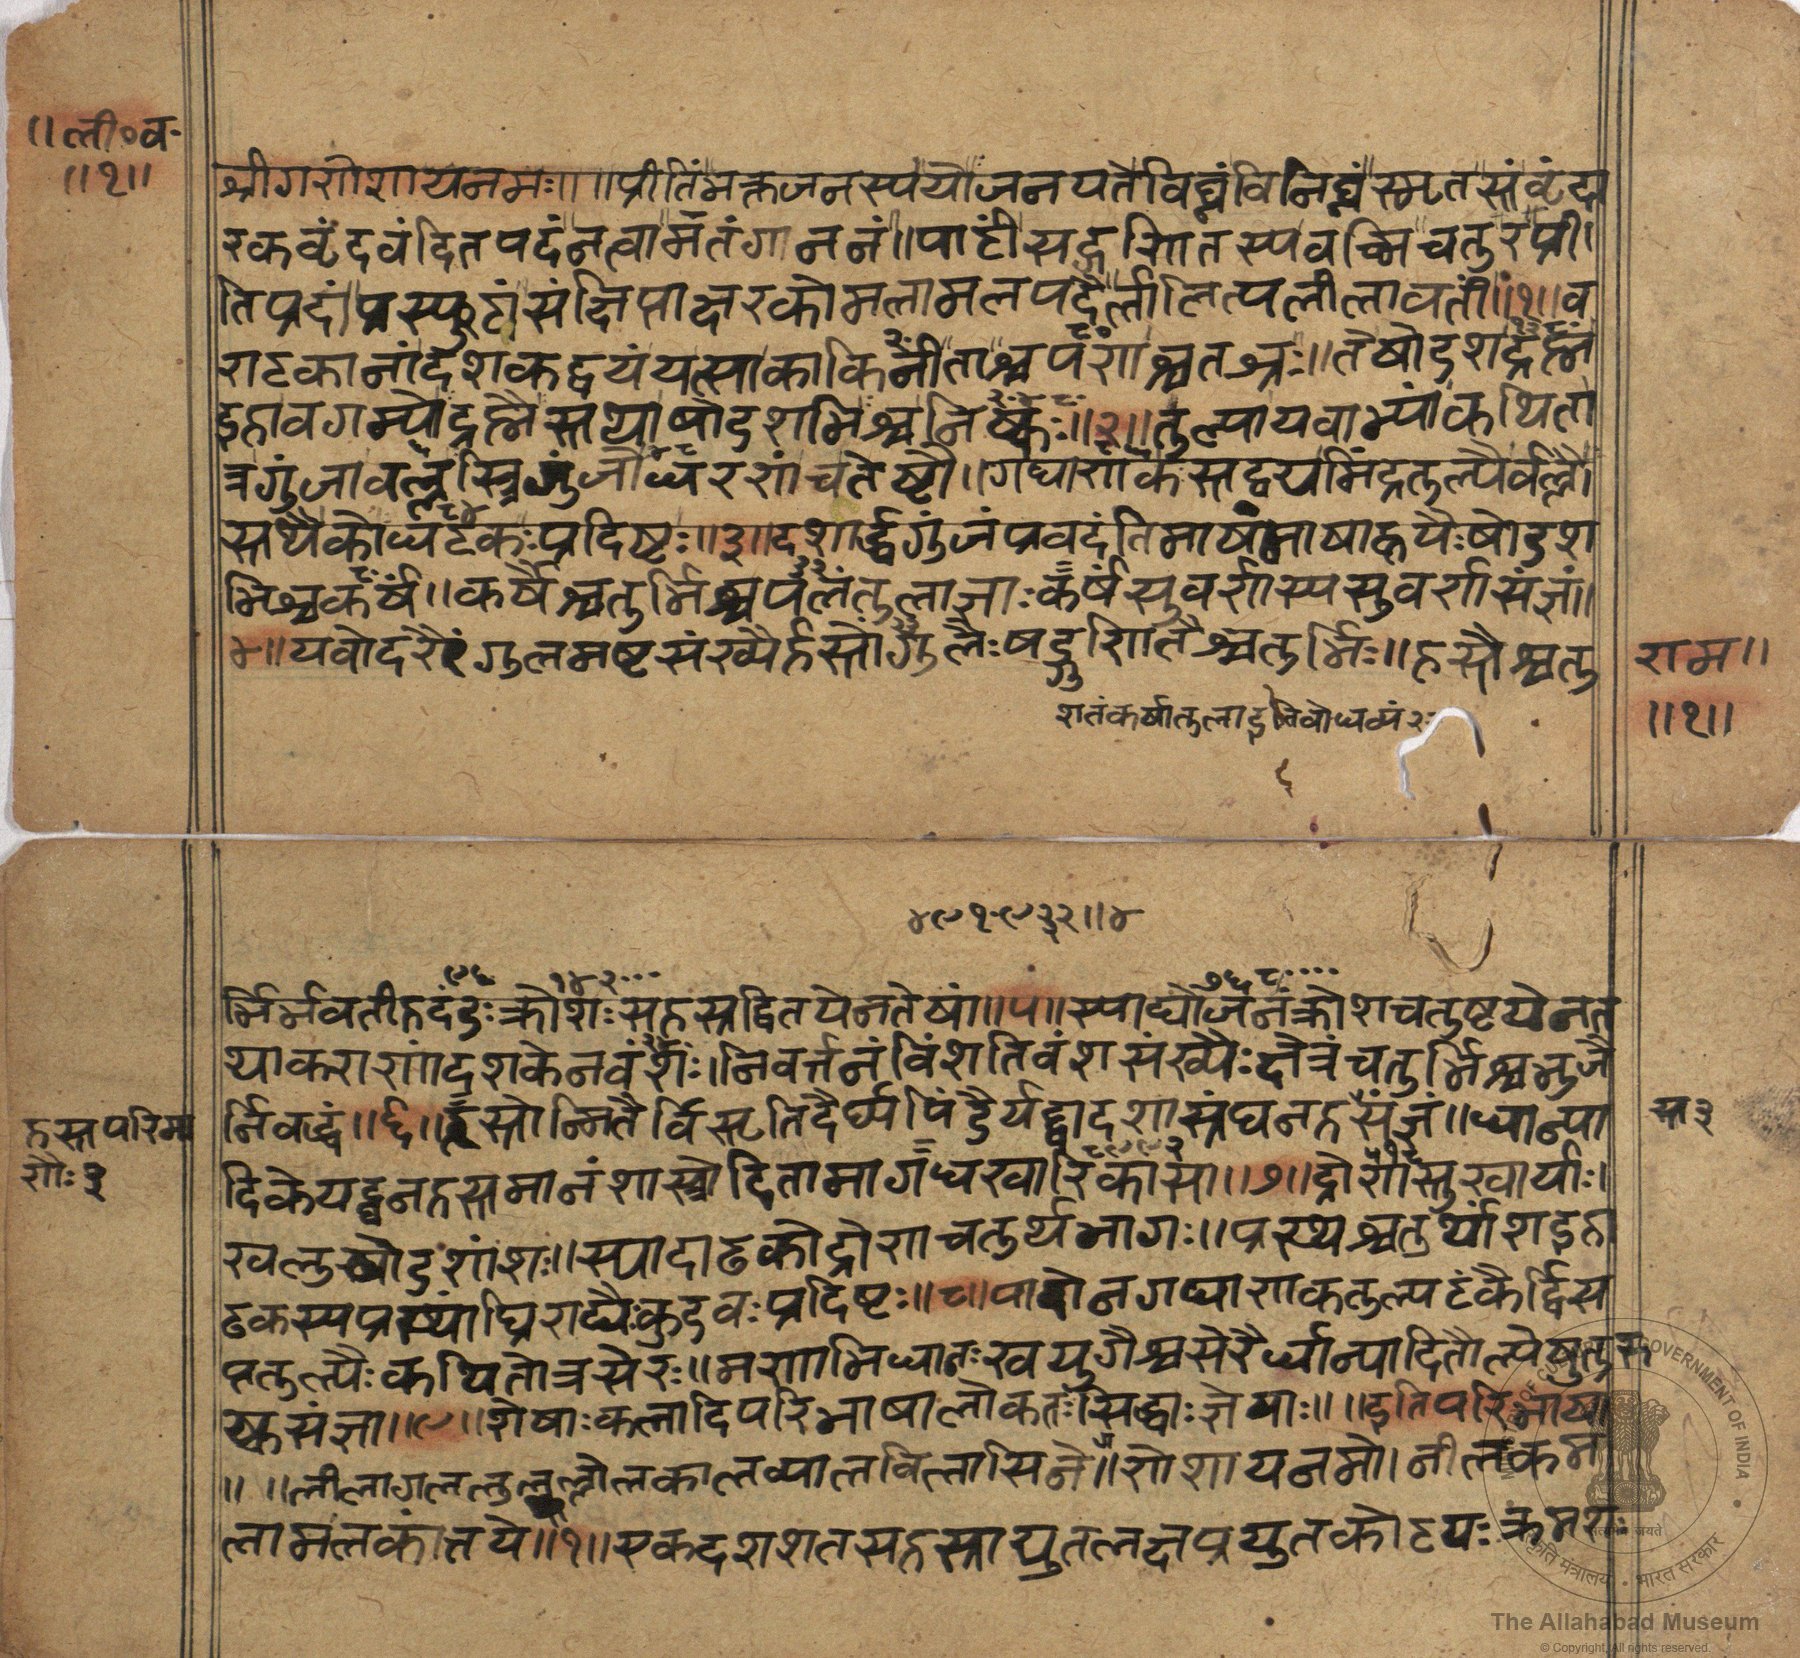 ॥ली०व-
॥१॥
श्रीगणेशायनमः॥ ॥प्रीतिंभक्तजनस्ययोजनयतेविघ्नंविनिघ्नंस्मृतस्तंवृंदा
रकवृंदवंदितपदंनत्वामतंगाननं॥पाटींसद्गणितस्यवच्मिचतुरप्री।
तिप्रदांप्रस्फुटांसंक्षिप्ताक्षरकोमलामलपदैर्लालित्यलीलावतीं॥१॥व
राटकानांदशकद्वयंयत्साकाकिनीताश्चपणश्चतस्रः॥तेषोडशद्रम्म
इहावगम्योद्रम्मैस्तथाषोडशभिश्चनिष्कः॥२॥तुल्यायवाभ्यांकथिता
त्रगुंजावल्लस्त्रिगुंजोधरणंचतेष्टौ॥गद्याणकस्तद्वयमिंद्रतुल्यैर्वल्लै
स्तथैकोधटकःप्रदिष्टः॥३॥दशार्द्धगुंजंप्रवदंतिमाषंमाषाह्वयैःषोडश
भिश्चकर्षं॥कर्षैश्चतुर्भिश्चपलंतुलाज्ञाःकर्षंसुवर्णस्यसुवर्णसंज्ञं॥
४॥यवोदरैरंगुलमष्टसंख्यैर्हस्तोंगुलैःषड्गुणितैश्चतुर्भिः॥हस्तैश्चतु
राम॥
॥१॥
शतंकर्षातुला
४९१-९३२॥४
९६ ७६८००००
र्भिर्भवतीहदंडःक्रोशःसहस्रद्वितयेनतेषां॥५॥स्याद्योजनंक्रोशचतुष्टयेनत
थाकराणांदशकेनवंशः।निवर्त्तनंविंशतिवंशसंख्यैःक्षेत्रंचतुर्भिश्चभुजै
र्निबद्धं॥६॥हस्तोन्मितैर्विस्तृतिदैर्घ्यपिंडैर्यद्द्वादशास्रंघनहस्तसंज्ञं॥धान्या
हस्तपरिमा
णैः३
स्त३
दिकेयद्घनहस्तमानंशास्त्रोदितामागधखारिकासा॥७॥द्रोणस्तुखार्याः।
खलुषोडशांशः॥स्यादाढकोद्रोणचतुर्थभागः॥प्रस्थश्चतुर्थांशइहा
ढकस्यप्रस्थांघ्रिराद्यैःकुडवःप्रदिष्टः॥८॥पादोनगद्याणकतुल्यटंकैर्द्विस
प्ततुल्यैःकथितोत्रसेरः॥मणाभिधानःखयुगैश्चसेरैर्धान्यादितौल्येषुतुरु
ष्कसंज्ञा॥९॥शेषाःकलादिपरिभाषालोकतःसिद्धाःज्ञेयाः॥ ॥इतिपरिभाषा
॥ ॥लीलागलल्लुलल्लोलकालव्यालविलासिने॥गणेशायनमो।नीलकम
लामलकांतये॥१॥एकदशशतसहस्रायुतलक्षप्रयुतकोटयःक्रमशः
The Allahabad Museum
© Copyright. All rights reserved.